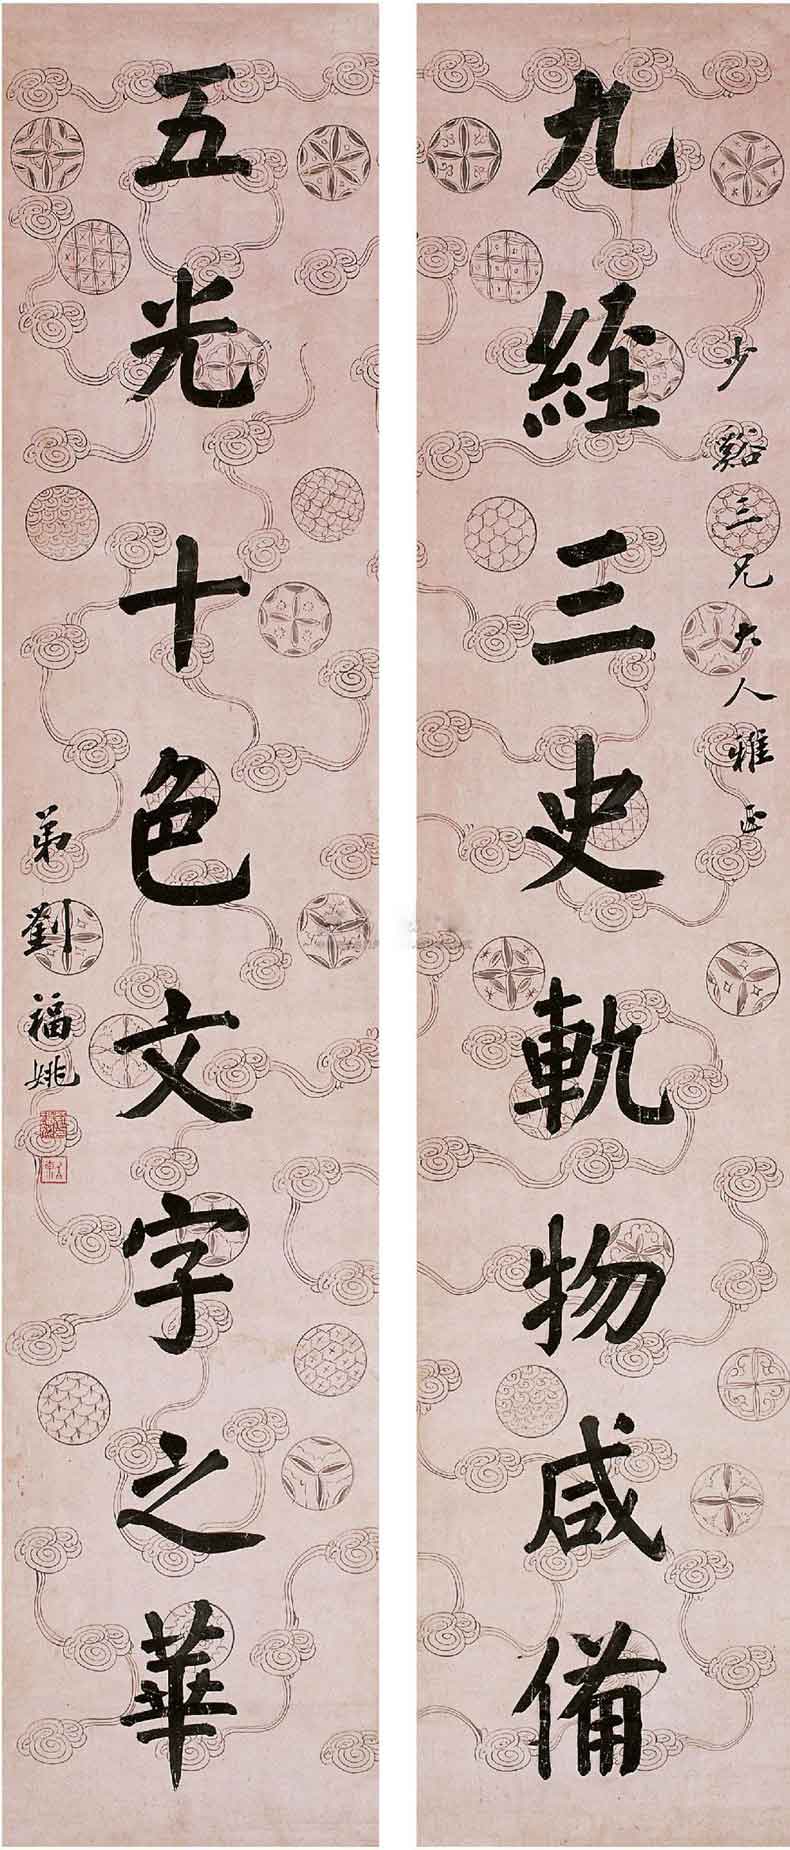 少谿三兄大人雅正
九經三史軌物咸備
五光十色文字之華
弟劉福姚